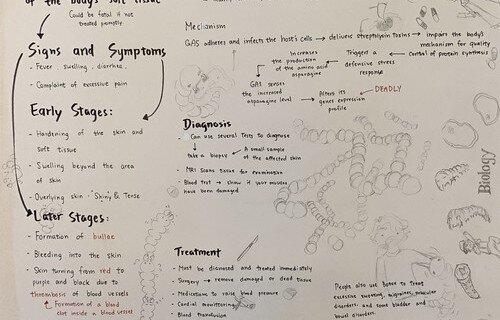 of the body's soft tissue
Could be fatal if not
treated promptly
Signs and Symptoms
- Fever, swelling, diarrhea
- Complaint of excessive pain
Early Stages:
- Hardening of the skin and
soft tissue
- Swelling beyond the area
of skin
- Overlying skin "Shiny" & Tense
Later Stages:
- Formation of bullae
- Bleeding into the skin
- Skin turning from red to
purple and black due to
thrombosis of blood vessels
Formation of a blood
clot inside a blood vessel
Mechanism
GAS adheres and infects the host's cells → delivers streptolysin toxins → impairs the body's
mechanism for quality
control of protein synthesis
Triggers a
defensive stress
response
Increases
the production
of the amino acid
asparagine
GAS senses
the increased
asparagine level
Alters its
genes expression
profile
DEADLY
Diagnosis
- Can use several Tests to diagnose
take a biopsy
A small sample
of the affected skin
- MRI Scans tissue for examination
- Blood test → show if your muscles
have been damaged
Treatment
- Must be diagnosed and treated immediately
- Surgery → remove damaged or dead tissue
- Medications to raise blood pressure
- Cardiac monitoring
- Blood transfusion
People also use botox to treat
excessive sweating, migraines, muscular
disorders, and some bladder and
bowel disorders.
Biology